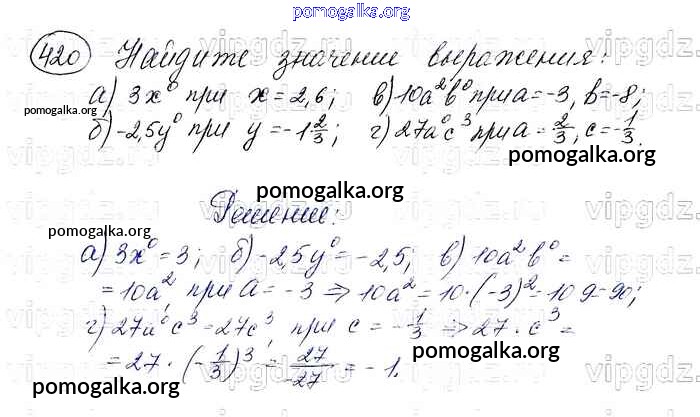 pomogalka.org
420 Найдите значение выражения:
а) 3x⁰ при x=2,6; в) 10a²b⁰ при a=-3, b=-8;
pomogalka.org
б) -2,5y⁰ при y=-1 2/3; г) 27a⁰c³ при a=2/3, c=-1/3.
pomogalka.org
pomogalka.org
Решение:
pomogalka.org
а) 3x⁰=3; б) -2,5y⁰=-2,5; в) 10a²b⁰=
=10a², при a=-3 ⇒ 10a²=10·(-3)²=10·9=90;
г) 27a⁰c³=27c³, при c=-1/3 ⇒ 27·c³=
=27·(-1/3)³=27/-27=-1.
pomogalka.org
pomogalka.org
pomogalka.org
vipgdz